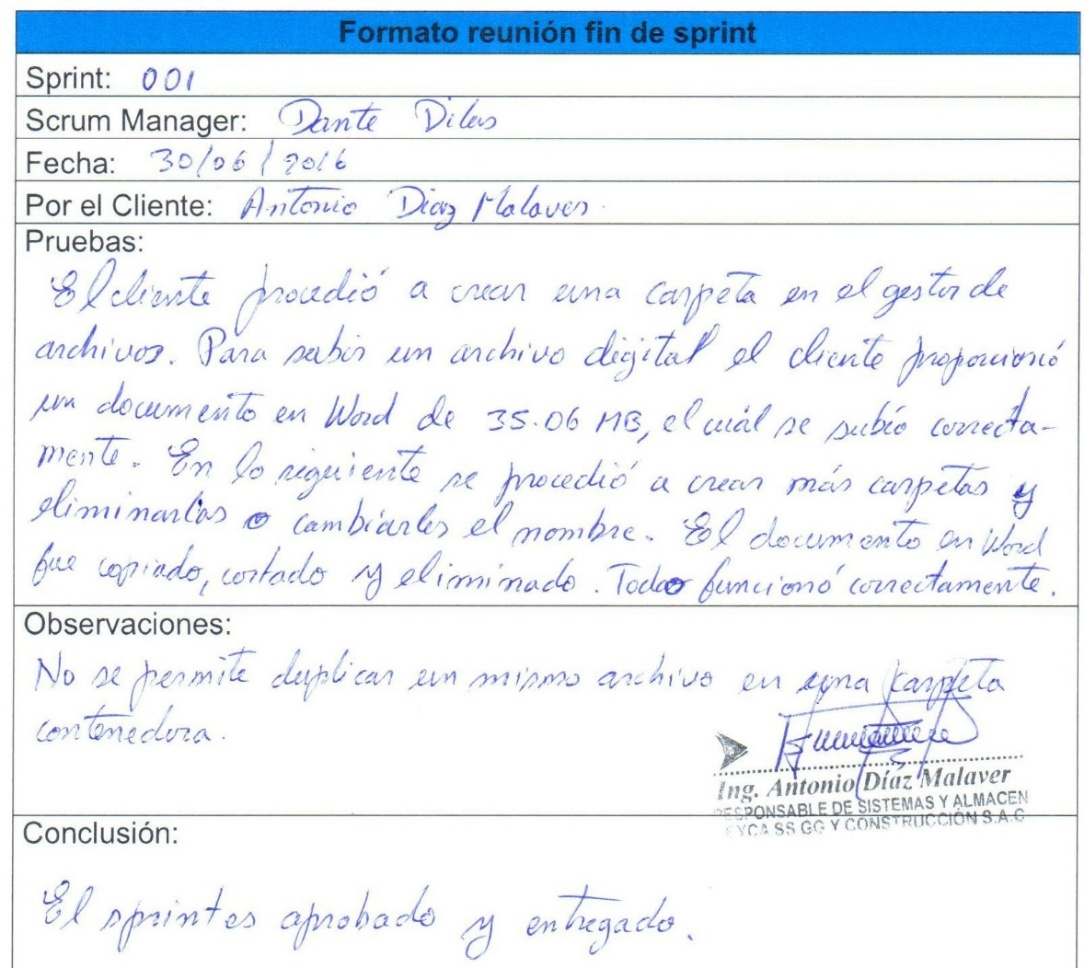 Formato reunión fin de sprint
Sprint: 001
Scrum Manager: Dante Dilas
Fecha: 30/06/2016
Por el Cliente: Antonio Diaz Malaver.
Pruebas:
El cliente procedió a crear una carpeta en el gestor de
archivos. Para subir un archivo digital el cliente proporcionó
un documento en Word de 35.06 MB, el cuál se subío correcta-
mente. En lo siguiente se procedió a crear más carpetas y
eliminarlas o cambiarles el nombre. El documento en Word
fue copiado, cortado y eliminado. Todo funcionó correctamente.
Observaciones:
No se permite duplicar un mismo archivo en una carpeta
contenedora.
Ing. Antonio Díaz Malaver
RESPONSABLE DE SISTEMAS Y ALMACEN
SS GG Y CONSTRUCCIÓN S.A.C
Conclusión:
El sprint es aprobado y entregado.